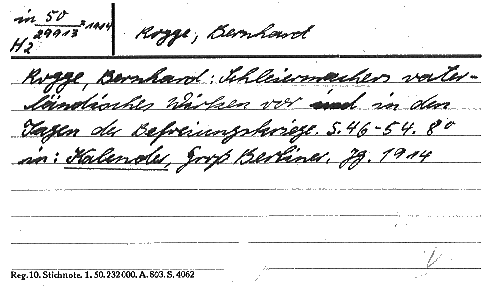 in 50
29913 = 1914
H2
Rogge, Bernhard
Rogge, Bernhard: Schleiermachers vater-
ländisches Wirken vor und in den
Tagen der Befreiungskriege. S. 46-54. 8°
in: Kalender, Groß Berliner. Jg. 1914
Reg. 10. Stichnote. 1. 50. 232 000. A. 803. S. 4062